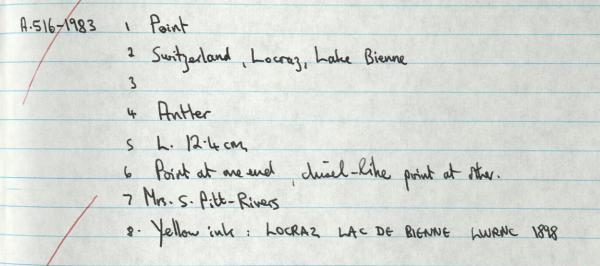 A.516-1983 1 Point
2 Switzerland, Locraz, Lake Bienne
3
4 Antler
5 L. 12.4 cm,
6 Point at one end, chisel-like point at other.
7 Mrs. S. Pitt-Rivers
8. Yellow ink: LOCRAZ LAC DE BIENNE 1898